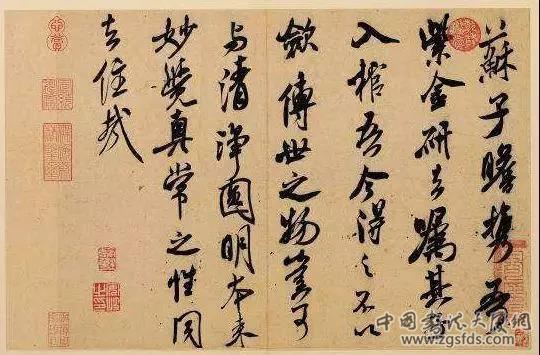 蘇子瞻携吾
紫金研去嘱其子
入棺吾今得之不以
歛傳世之物豈可
与清淨圓明本来
妙覺真常之性同
去住哉
中国书法大师网
www.zgsfds.com